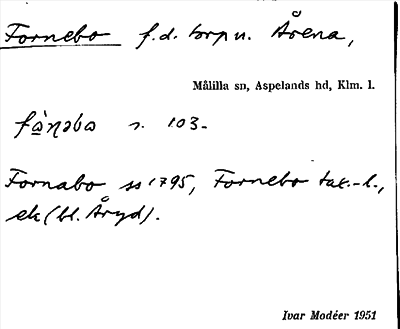 Fornebo f.d. torp u. Årena,
Målilla sn, Aspelands hd, Klm. l.
fɑ̀ṇəbo s. 103.
Fornabo ss 1795, Fornebo tax.-l.,
ek (bl. Åryd).
Ivar Modéer 1951